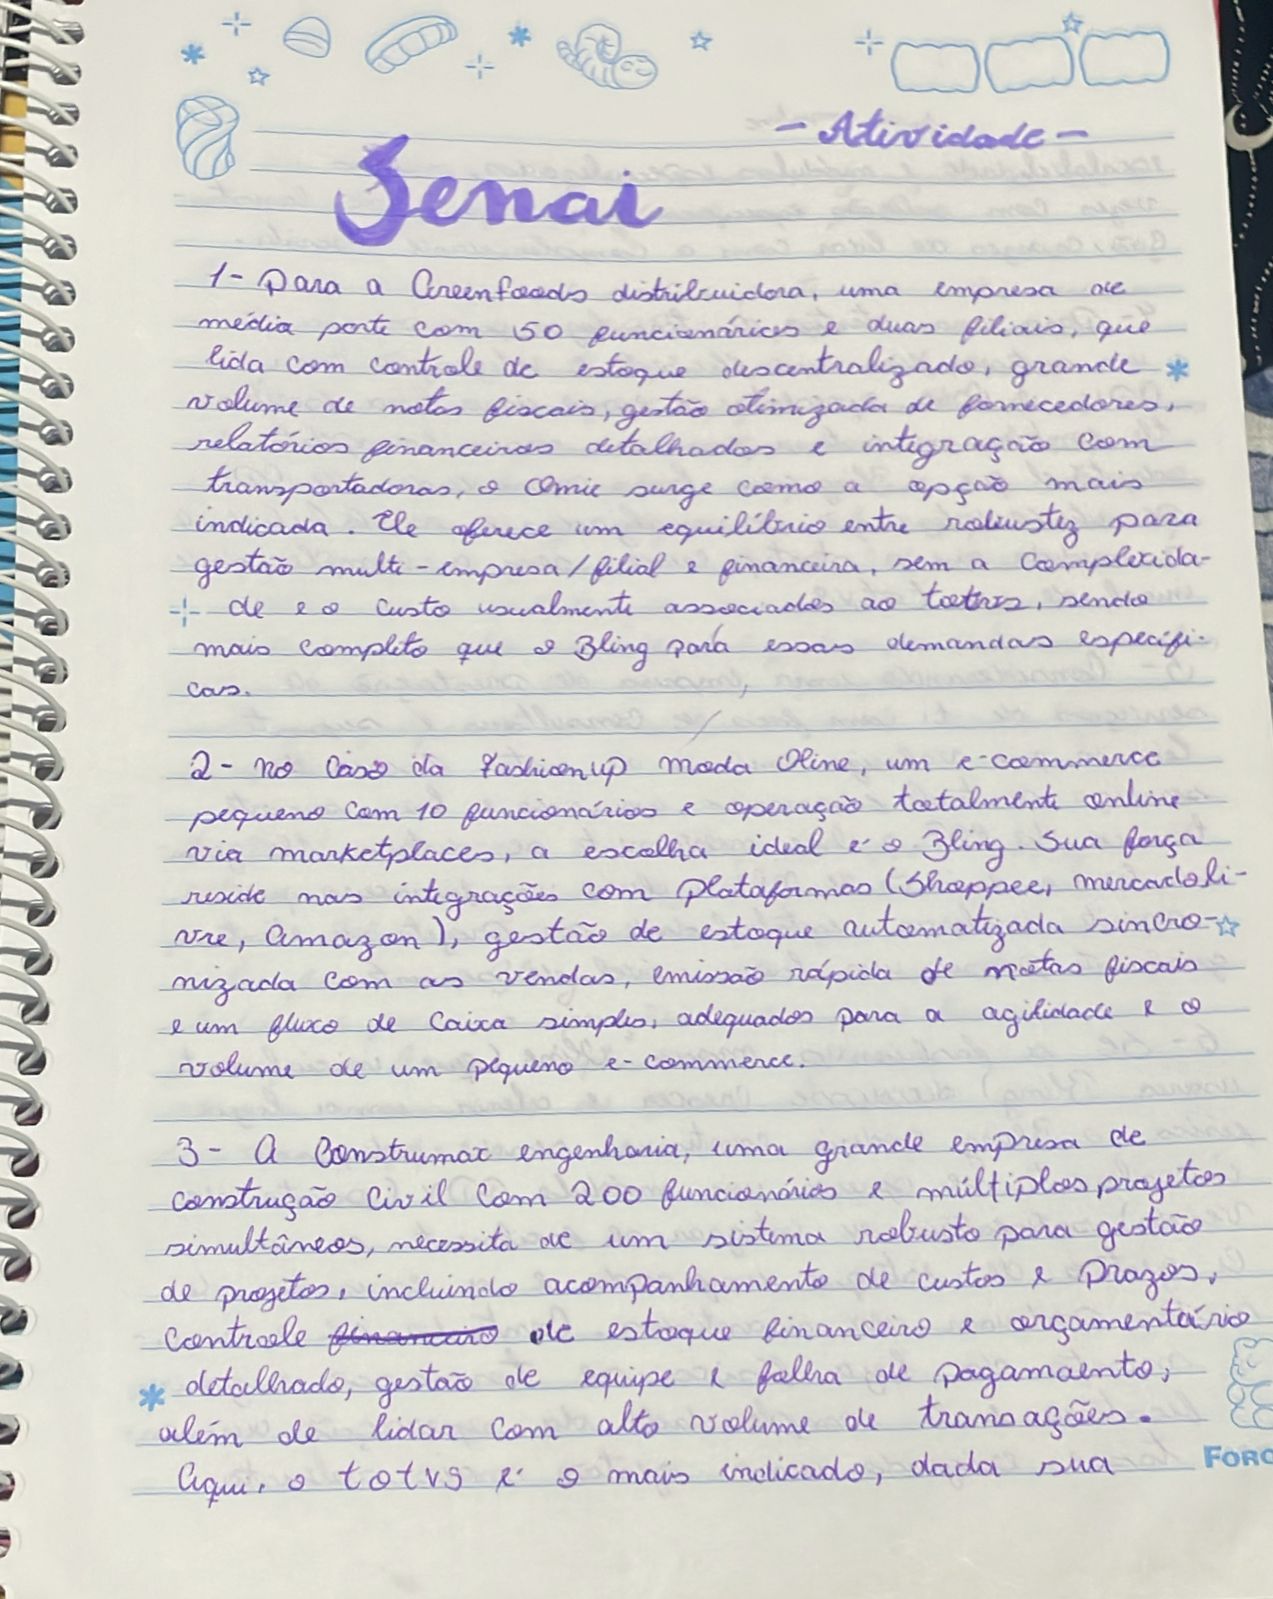 - Atividade -
Senai
1- Para a Greenfoods distribuidora, uma empresa de
média porte com 50 funcionários e duas filiais, que
lida com controle de estoque descentralizado, grande
volume de notas fiscais, gestão otimizada de fornecedores,
relatórios financeiros detalhados e integração com
transportadoras, o Omie surge como a opção mais
indicada. Ele oferece um equilíbrio entre robustez para
gestão multi-empresa/filial e financeira, sem a complexida-
de e o custo usualmente associados ao totvs, sendo
mais completo que o Bling para essas demandas especifi-
cas.
2- no caso da Fashionup moda Oline, um e-commerce
pequeno com 10 funcionários e operação totalmente online
via marketplaces, a escolha ideal é o Bling. Sua força
reside nas integrações com plataformas (Shoppee, mercado li-
vre, amazon), gestão de estoque automatizada sincro-
nizada com as vendas, emissão rápida de notas fiscais
e um fluxo de caixa simples, adequados para a agilidade e o
volume de um pequeno e-commerce.
3- A Construmax engenharia, uma grande empresa de
construção civil com 200 funcionários e múltiplos projetos
simultâneos, necessita de um sistema robusto para gestão
de projetos, incluindo acompanhamento de custos e prazos,
controle financeiro de estoque financeiro e orçamentário
detalhado, gestão de equipe e folha de pagamento,
além de lidar com alto volume de transações.
Aqui, o totvs é o mais indicado, dada sua
FORO